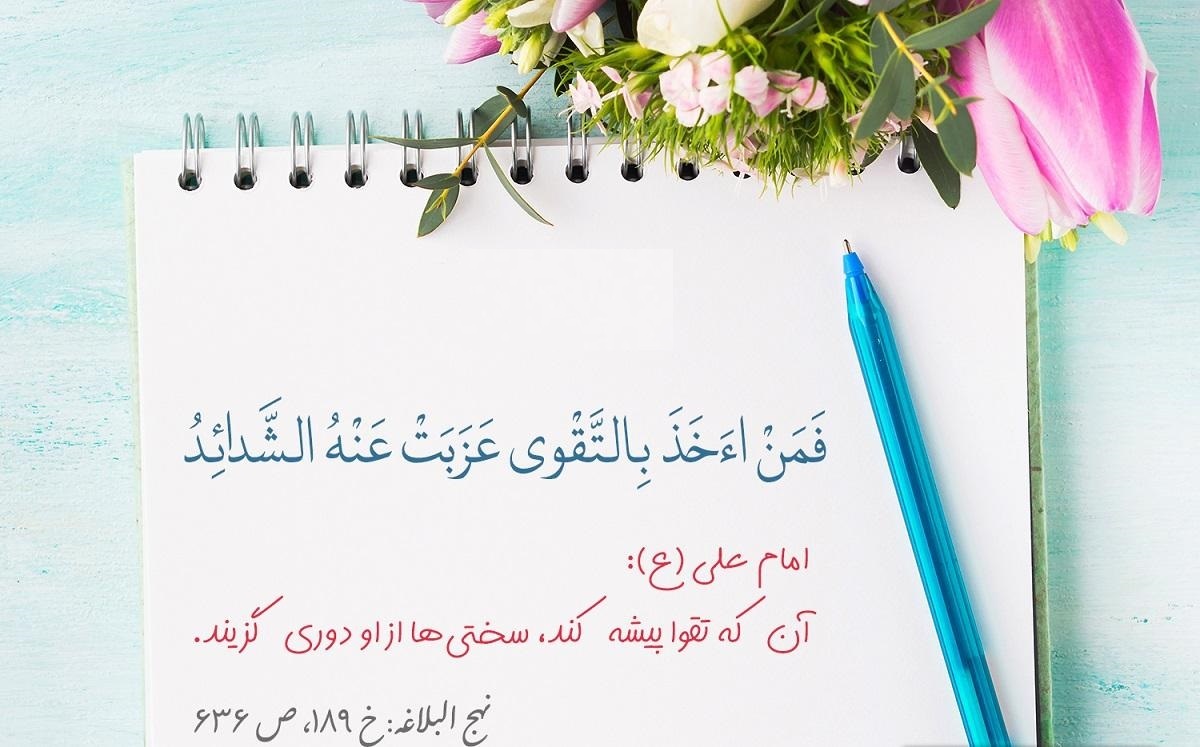 فَمَنْ اءَخَذَ بِالتَّقْوى عَزَبَتْ عَنْهُ الشَّدائِدُ
امام علی (ع):
آن که تقوا پیشه کند، سختی‌ها از او دوری گزیند.
نهج البلاغه: خ ۱۸۹، ص ۶۳۶